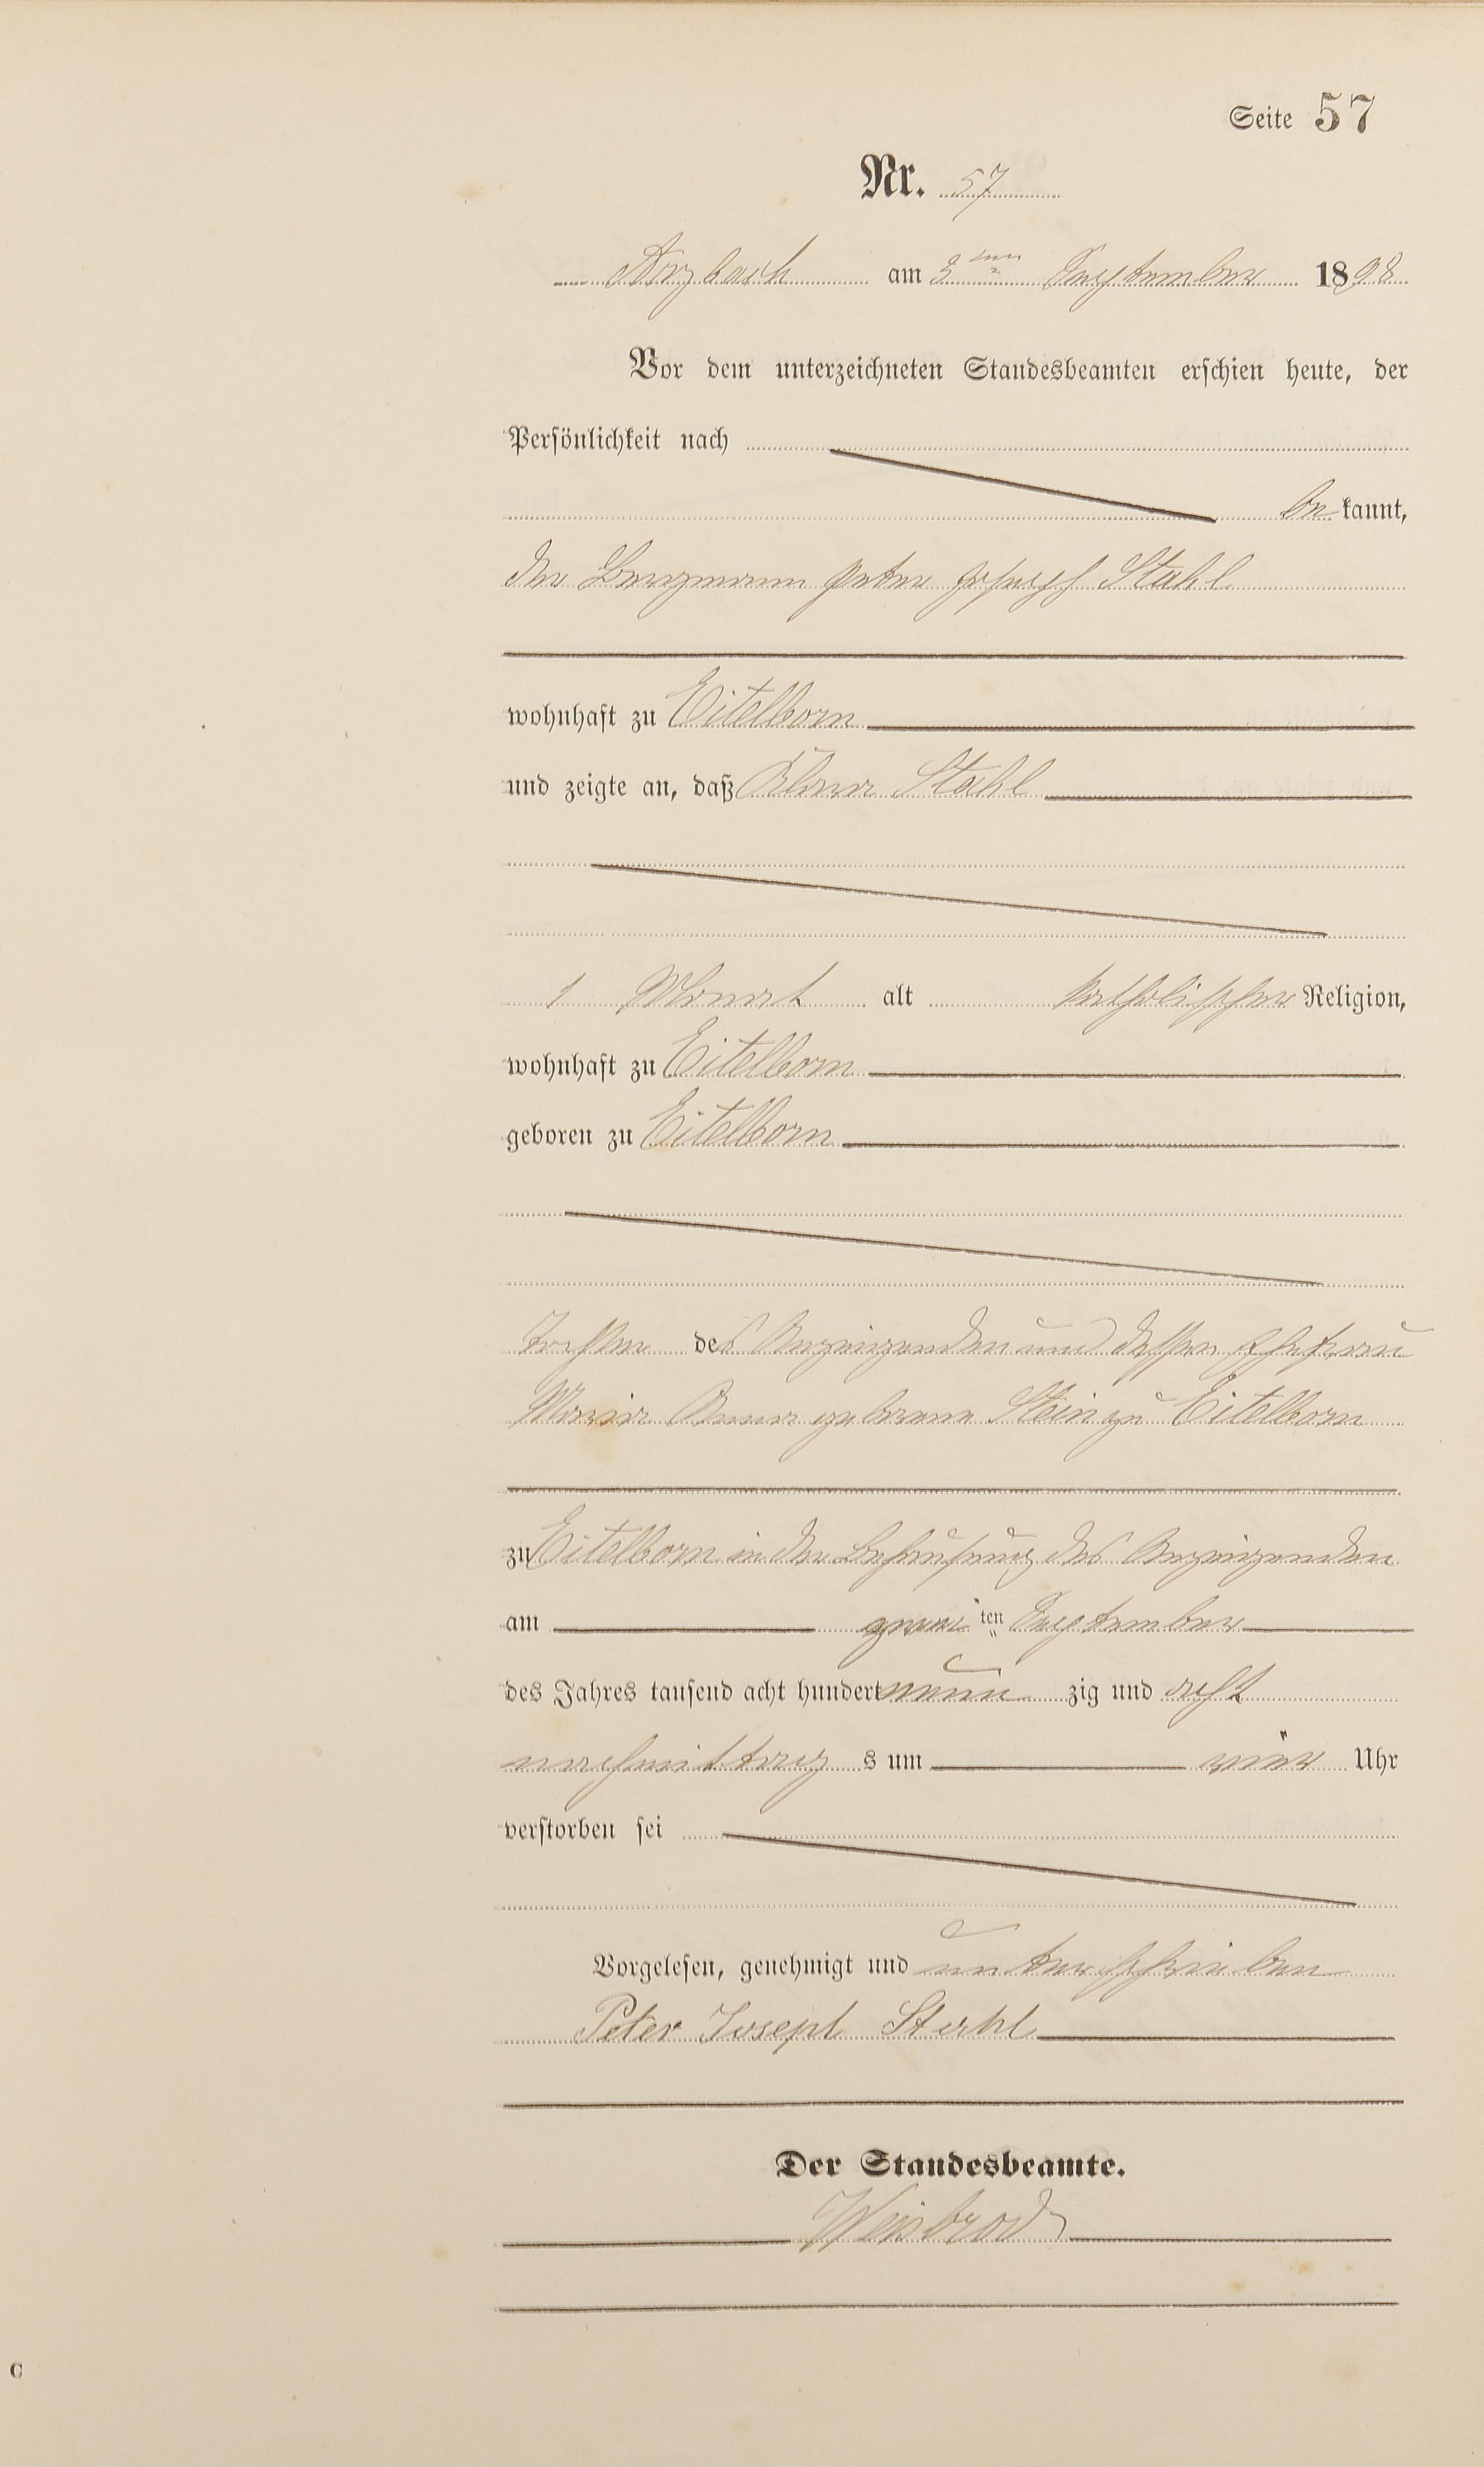 Seite 57
Nr. 57
Arzbach am 3ten September 1898
Vor dem unterzeichneten Standesbeamten erschien heute, der
Persönlichkeit nach
be kannt,
der Bergmann Peter Joseph Stahl
wohnhaft zu Eitelborn
und zeigte an, daß Klara Stahl
1 Monat alt katholischer Religion,
wohnhaft zu Eitelborn
geboren zu Eitelborn
Tochter des Anzeigenden und dessen Ehefrau
Maria Anna geborene Stein zu Eitelborn
zu Eitelborn in der Behausung des Anzeigenden
am zwei ten September
des Jahres tausend acht hundert neun zig und acht
nachmittag s um vier Uhr
verstorben sei
Vorgelesen, genehmigt und unterschrieben
Peter Joseph Stahl
Der Standesbeamte.
Weisbrod
C